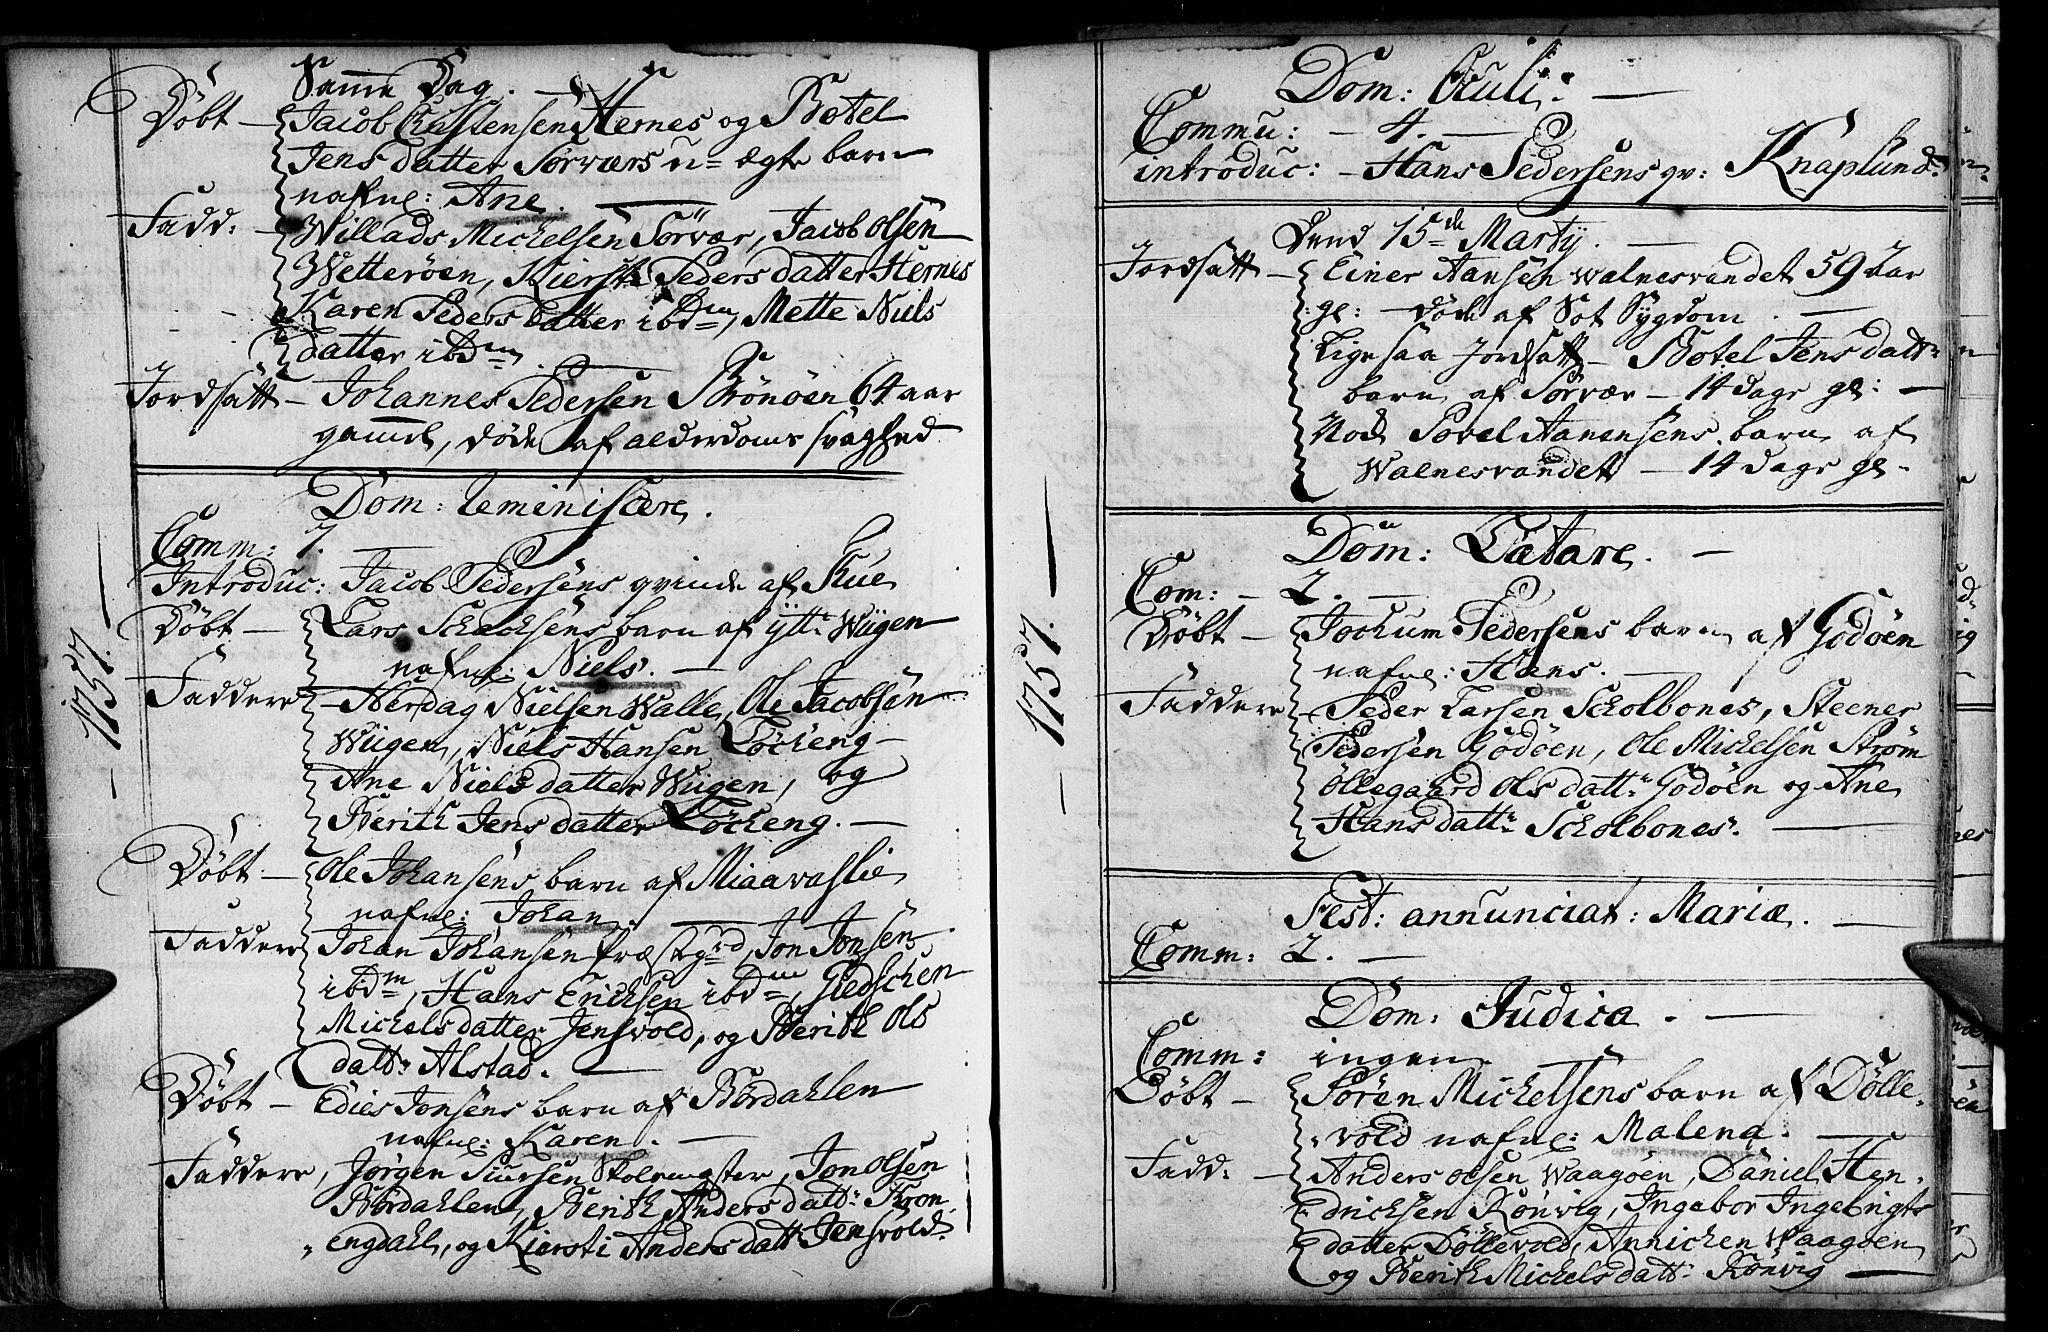 Samme Dag.
Döbt — Jacob Christensen Hernes og Botel
Jens datter Sørværs u=ægte barn
nafne: Ane.
Fadd: — Willads Michelsen Sörvær, Jacob Olsen
Wetteröen, Kiersti Peders datter Hernes
Karen Peders datter ibdm, Mette Niels
datter ibdm
Jordsatt — Johannes Pedersen Brönöen 64 aar
gammel, döde af alderdoms svaghed
Dom: Reminiscere.
Comm: 7.
Introduc: Jacob Pedersens qvinde af Skue
Döbt — Lars Schechsens barn af ytt: Wiigen
nafne: Niels. —
Faddere — Herdag Nielsen Walle, Ole Jacobsen
Wiigen, Niels Hansen Löcheng
Ane Niels datter Wiigen, og
Berith Jens datter Löcheng. —
Döbt. — Ole Johansens barn af Miaavaslie
nafne: Johan. —
Faddere Johan Johansen Præstgrd, Jon Jonsen
ibdm, Hans Ericksen ibdm, Giedschen
Michels datter Jensvold, og Berith Ols
datt: Alstad. —
Döbt — Edies Jonsens barn af Bördahlen
nafne: Karen. —
Faddere, Jörgen Siursen Skolemester, Jon Olsen
Bördahlen, Berith Anders datt: Kron,
„engdahl, og Kiersti Anders datt: Jensvold.
— 1757. —
Dom: Oculi. —
Commu: — 4. —
introduc: — Hans Pedersens qv: Knaplund.
Dend 15de Martij. —
Jordsatt — Einer Aansen Walnesvandet 59 Aar
:gl: — döde af Sot Sygdom. —
Ligesaa Jordsatt — Botel Jens datt:
barn af Sörvær — 14 dage gl: —
Nok Povel Aanensens barn af
Walnesvandet — 14 dage gl —
Dom: Lætare. —
Com: — 2. —
Döbt — Jochum Pedersens barn af Godöen
nafne: Hans. —
Faddere — Peder Larsen Scholbones, Steener
Pedersen Godöen, Ole Michelsen Ström
Ollegaard Ols datt: Godöen og Ane
Hans datt: Scholbones. —
Fest: annunciat: Mariæ. —
Comm: 2. —
Dom: Judica. —
Comm: ingen
Döbt — Sören Michelsens barn af Dölle,
„vold nafne: Malena. —
Fadd: — Anders Olsen Waagöen, Daniel Hen,
„dricksen Rönvig, Ingebor Ingebrigts
datter Döllevold, Annichen Waagöen
og Berith Michels datt: Rönvig —
— 1757. —